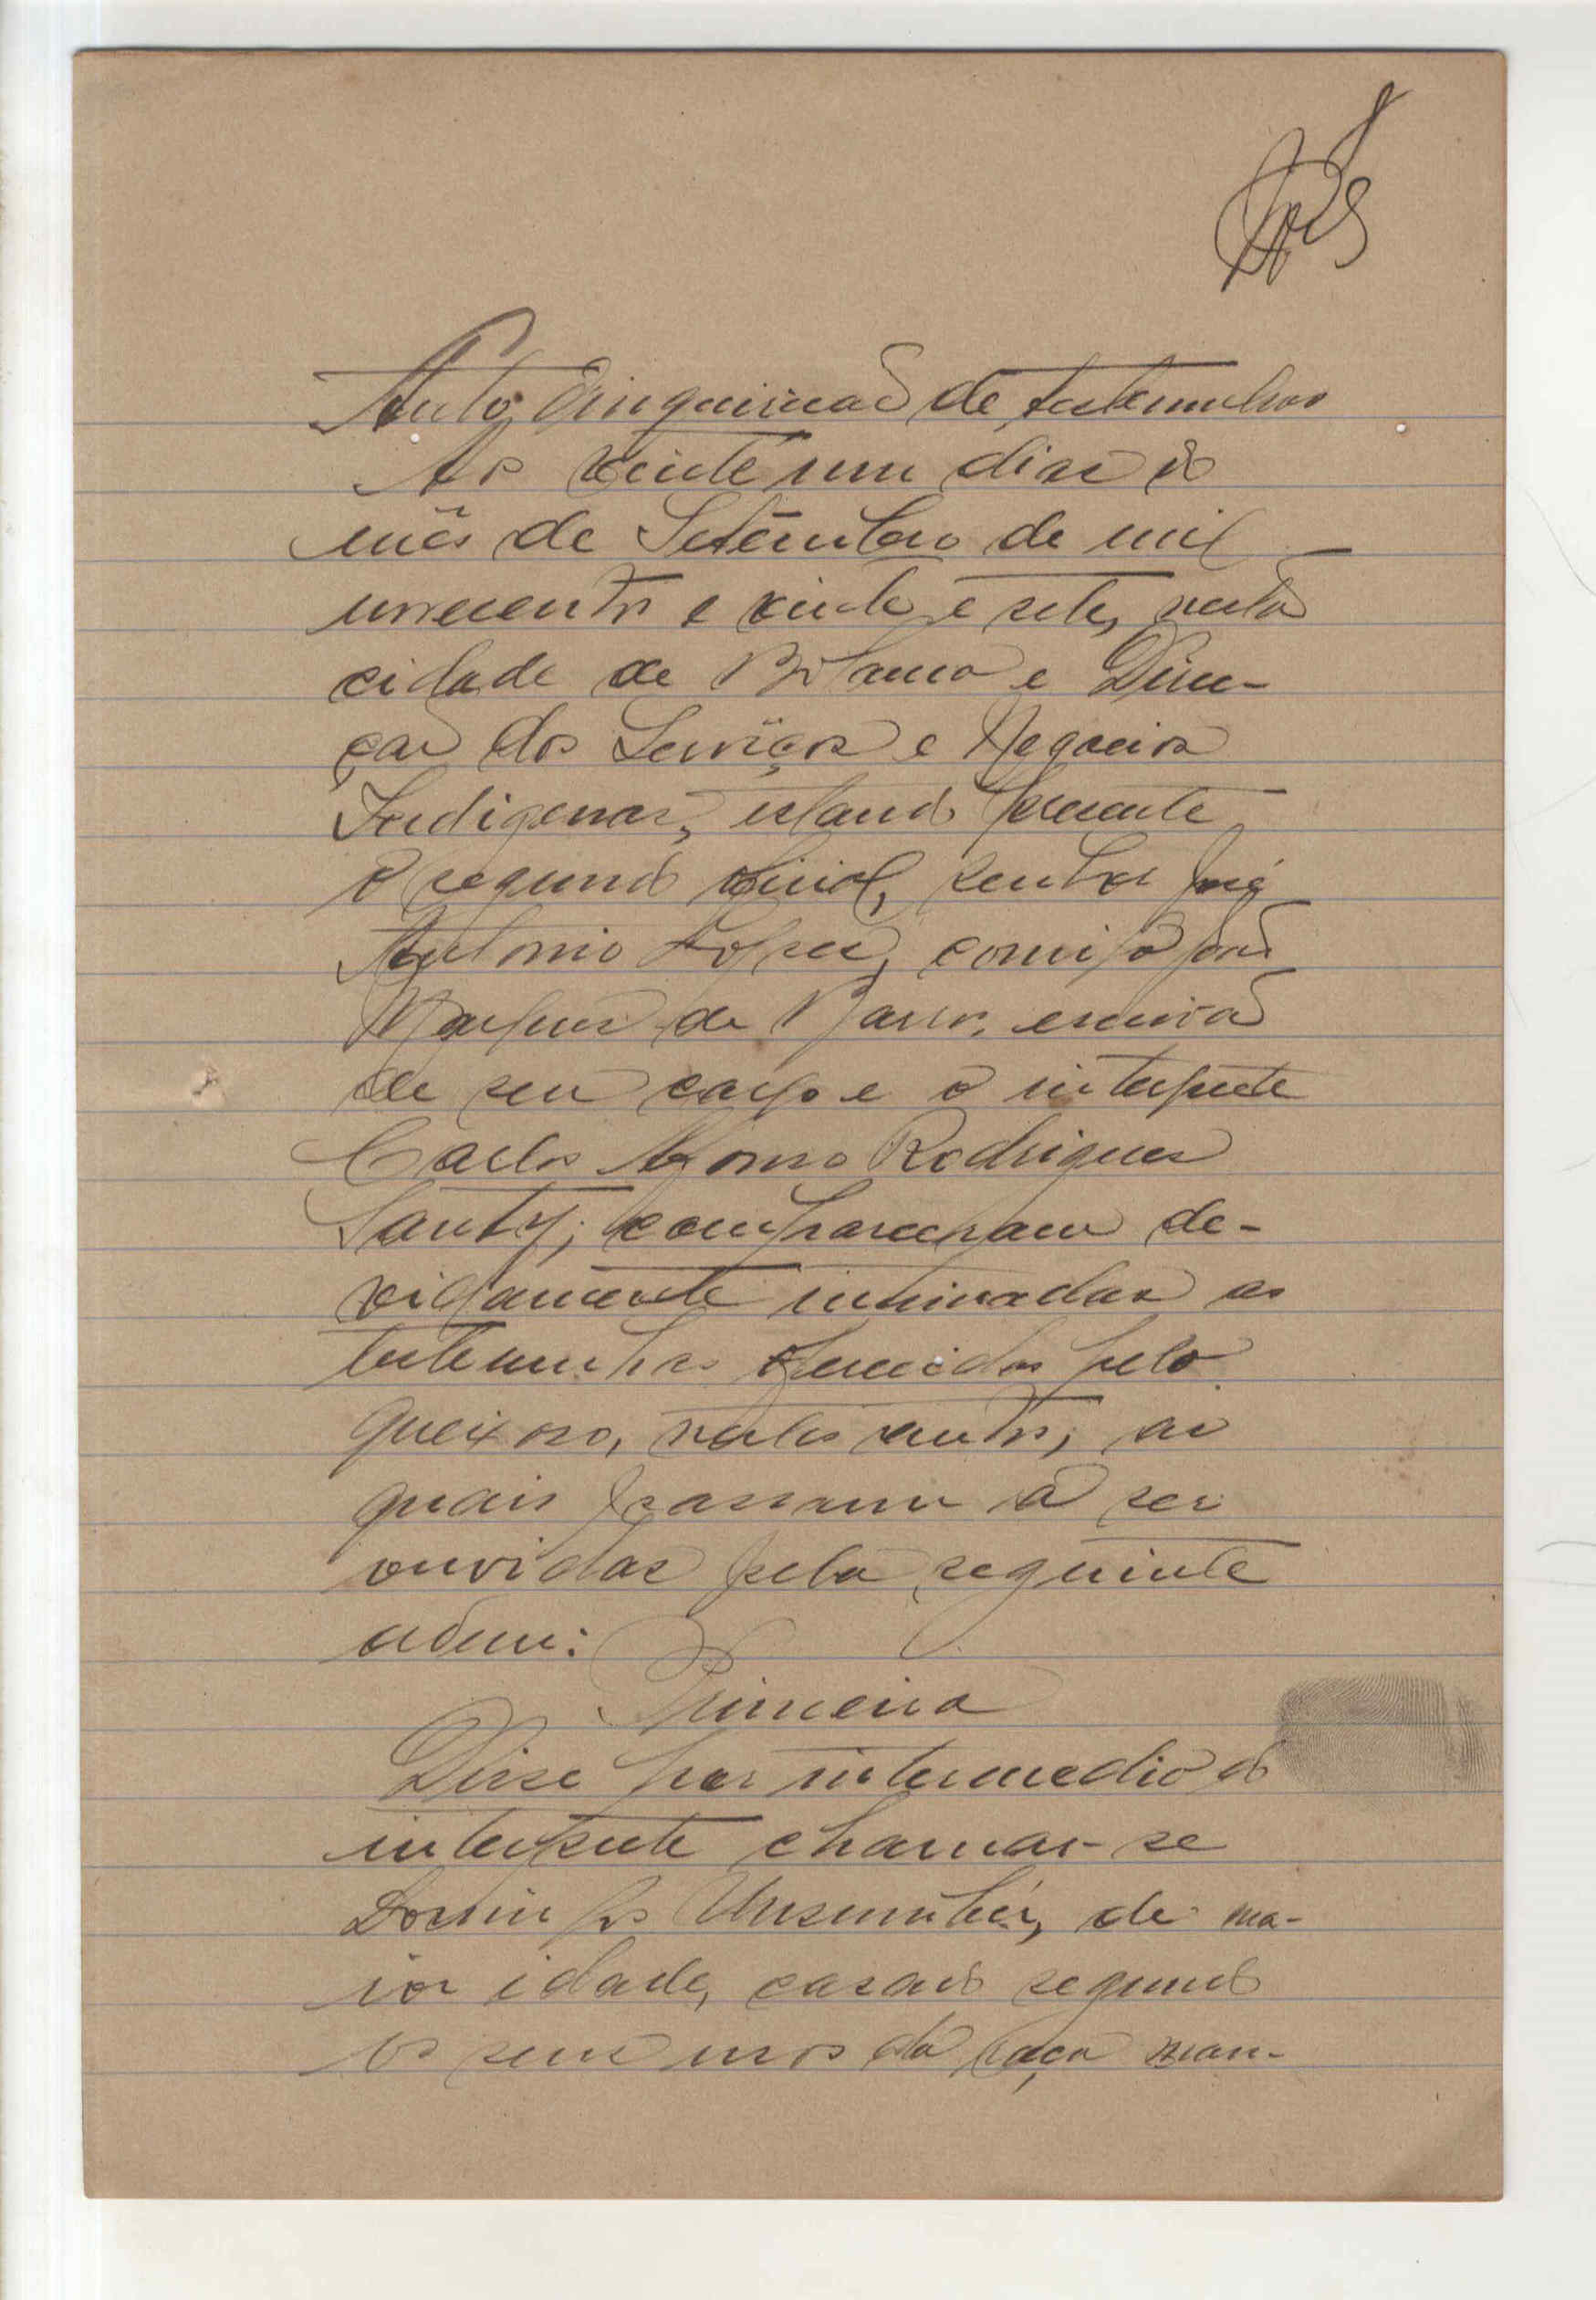 Auto d'inquirição de testemunhas
Aos vinte um dias do
mês de Setembro de mil
novecentos e vinte e sete, nesta
cidade de Bolama e Direc-
ção dos Serviços e Negocios
Indigenas, estando presente
o segundo oficial, senhor José
Antonio Lopes, comigo José
Marques de Barros, escrivão
de seu cargo e o interprete
Carlos Afonso Rodrigues
Santy; compareceram de-
vidamente intimadas as
testemunhas oferecidas pelo
queixoso, nestes autos, as
quais passaram a ser
ouvidas pela seguinte
ordem:
Primeira
Disse por intermedio do
interprete chamar-se
Domingos, de ma-
ior idade, casado segundo
os seus usos da raça man-